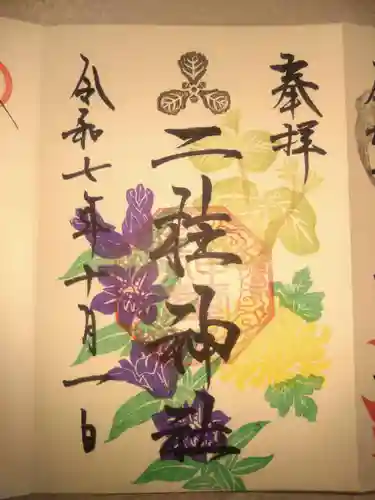 奉拝
二社神社
令和七年十月一日